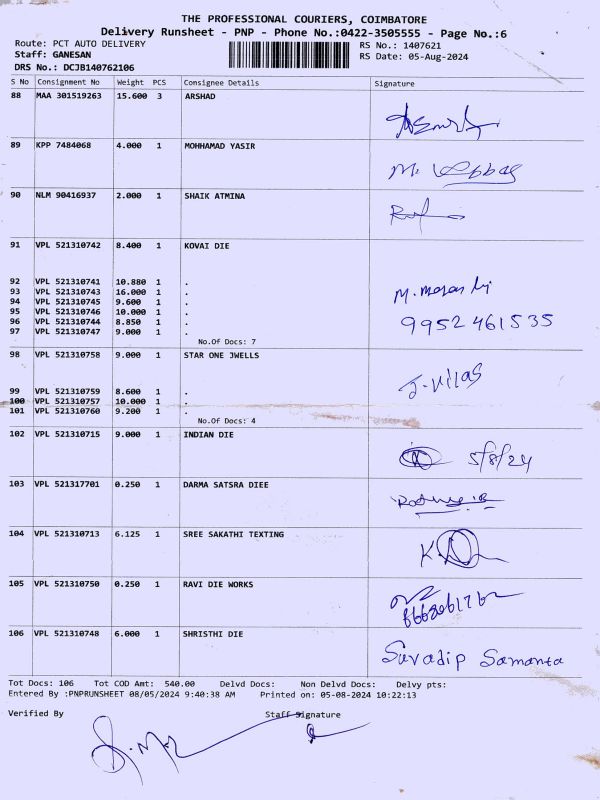 THE PROFESSIONAL COURIERS, COIMBATORE
Delivery Runsheet - PNP - Phone No.:0422-3505555 - Page No.:6
Route: PCT AUTO DELIVERY RS No.: 1407621
Staff: GANESAN RS Date: 05-Aug-2024
DRS No.: DCJB140762106
S No Consignment No Weight PCS Consignee Details Signature
88 MAA 301519263 15.600 3 ARSHAD
89 KPP 7484068 4.000 1 MOHHAMAD YASIR
90 NLM 90416937 2.000 1 SHAIK ATMINA
91 VPL 521310742 8.400 1 KOVAI DIE
92 VPL 521310741 10.880 1 .
93 VPL 521310743 16.000 1 .
94 VPL 521310745 9.600 1 .
95 VPL 521310746 10.000 1 .
96 VPL 521310744 8.850 1 .
97 VPL 521310747 9.000 1 .
9952461535
No.Of Docs: 7
98 VPL 521310758 9.000 1 STAR ONE JWELLS
J-Vilas
99 VPL 521310759 8.600 1 .
100 VPL 521310757 10.000 1 .
101 VPL 521310760 9.200 1 .
No.Of Docs: 4
102 VPL 521310715 9.000 1 INDIAN DIE
5/8/24
103 VPL 521317701 0.250 1 DARMA SATSRA DIEE
104 VPL 521310713 6.125 1 SREE SAKATHI TEXTING
105 VPL 521310750 0.250 1 RAVI DIE WORKS
106 VPL 521310748 6.000 1 SHRISTHI DIE
Suvadip Samanta
Tot Docs: 106 Tot COD Amt: 540.00 Delvd Docs: Non Delvd Docs: Delvy pts:
Entered By :PNPRUNSHEET 08/05/2024 9:40:38 AM Printed on: 05-08-2024 10:22:13
Verified By Staff Signature